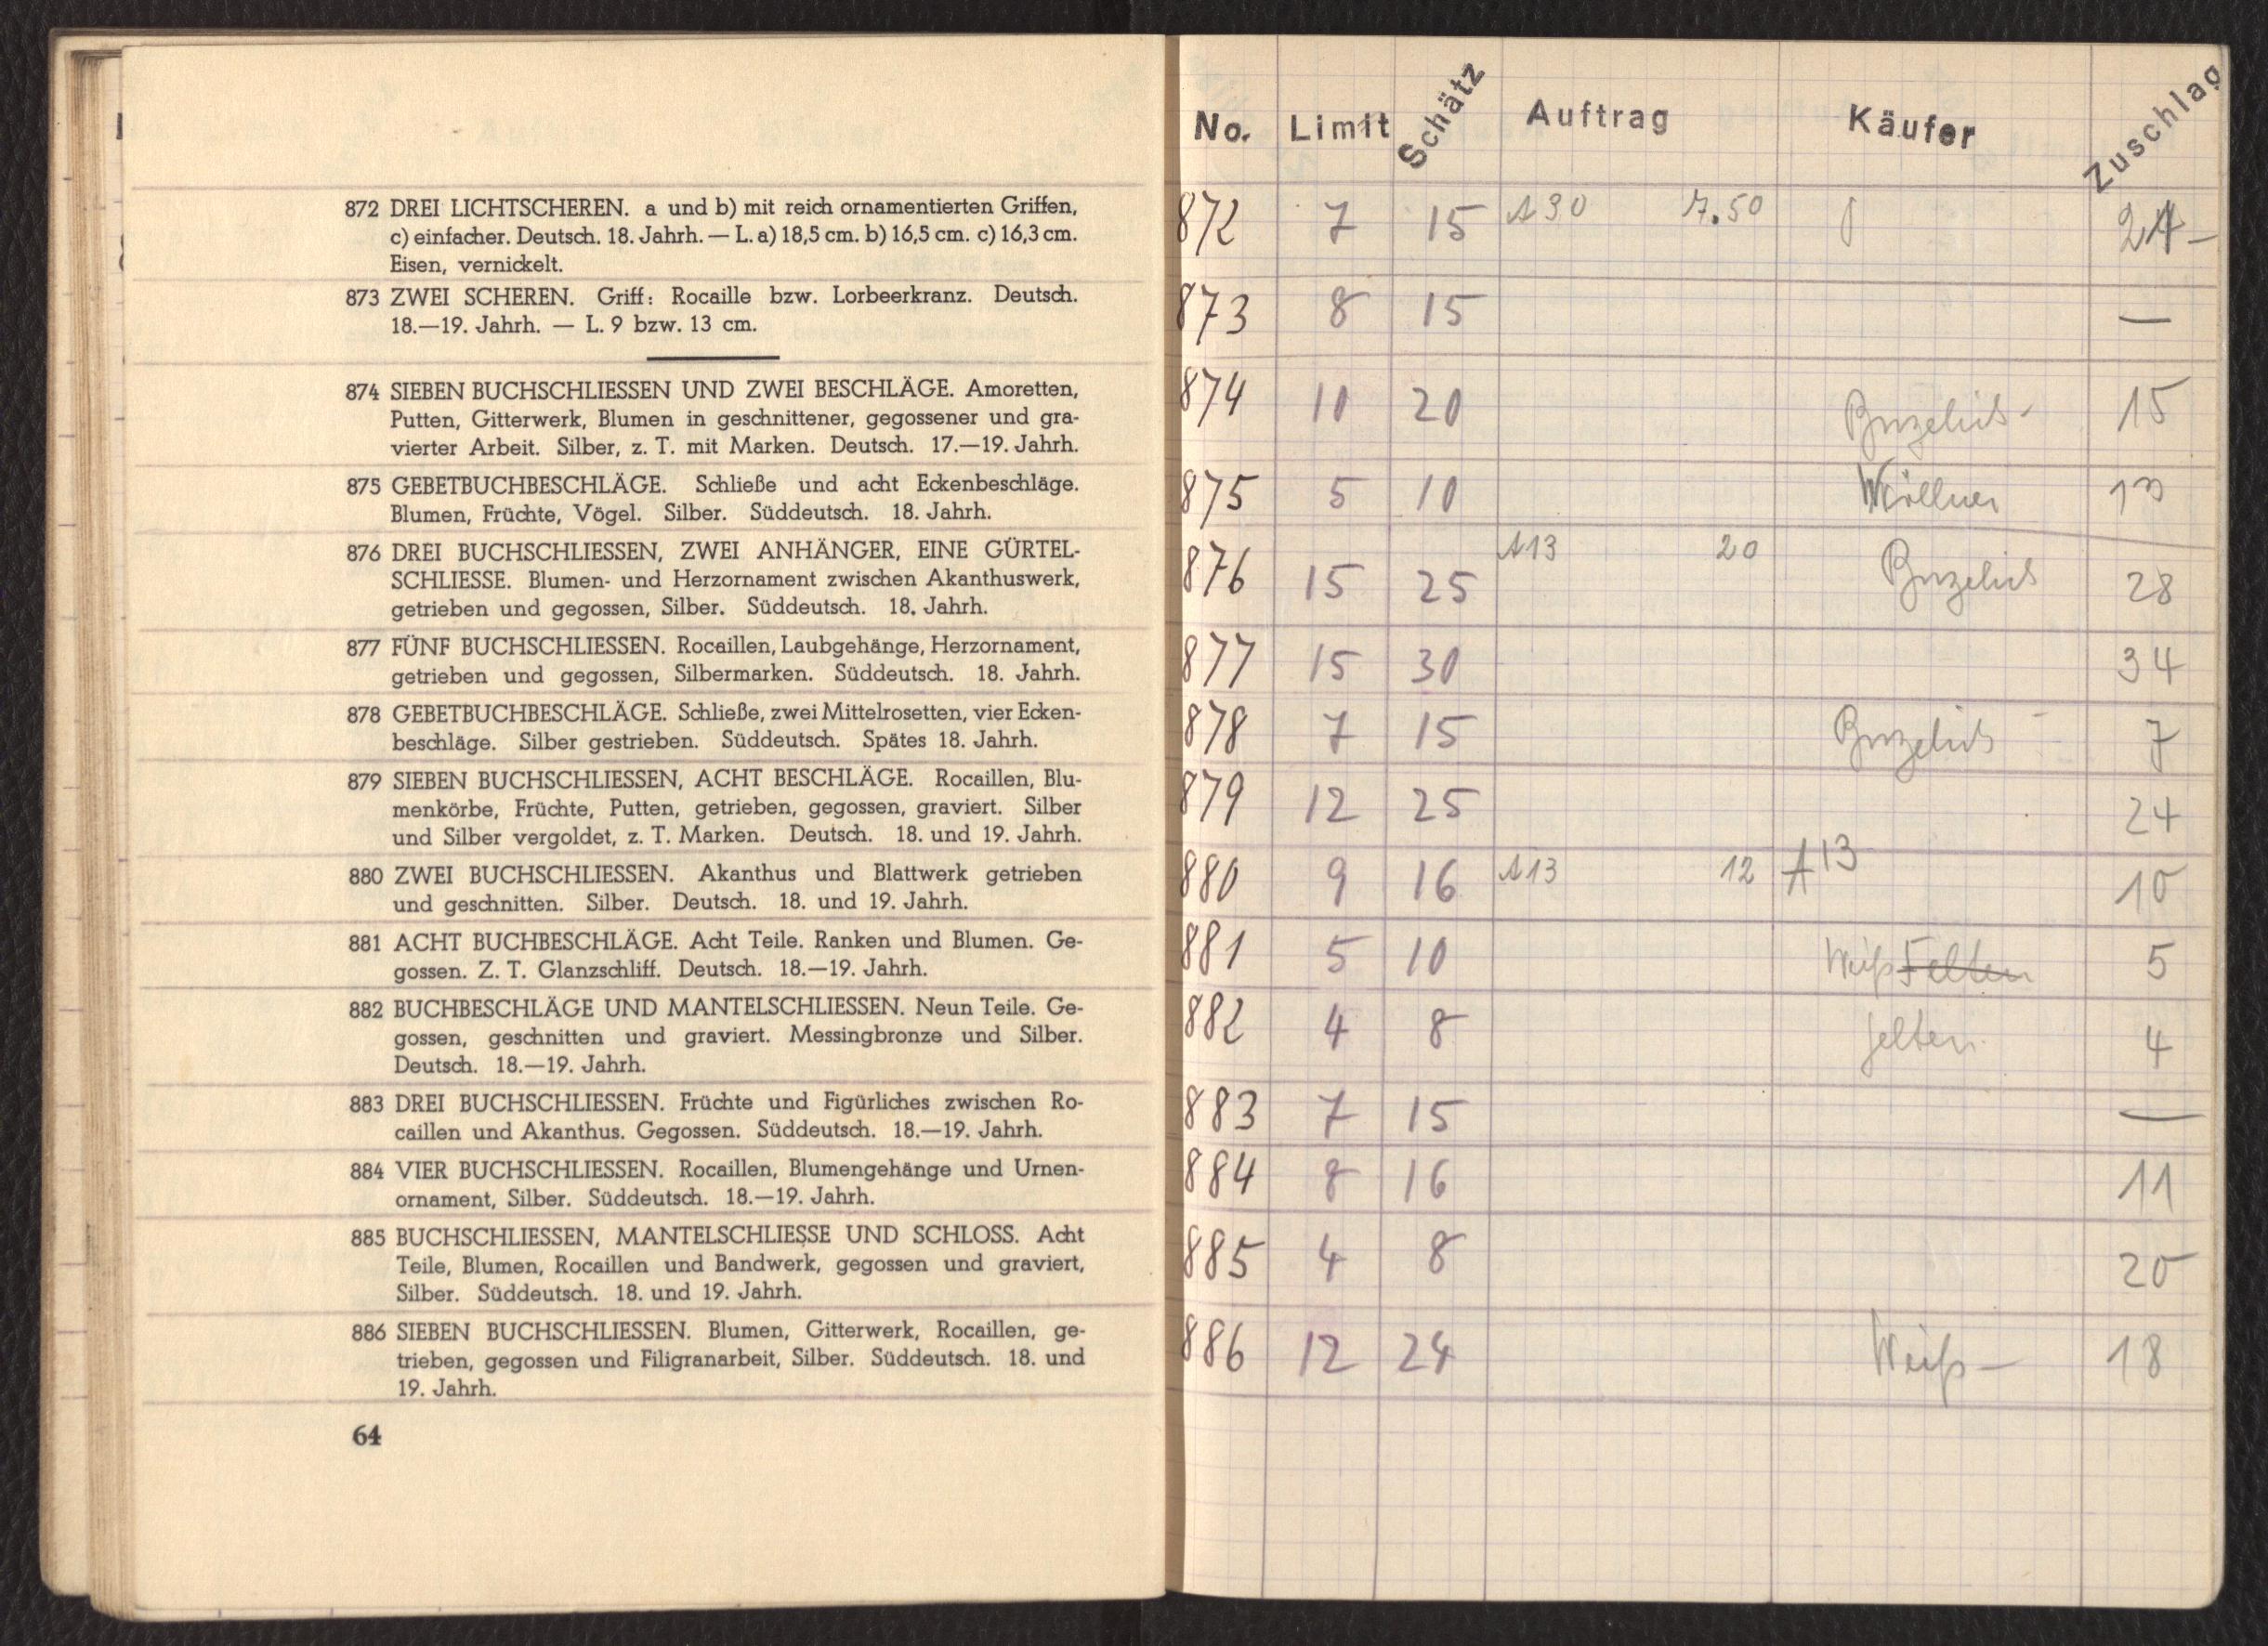 872 DREI LICHTSCHEREN. a und b) mit reich ornamentierten Griffen,
c) einfacher. Deutsch. 18. Jahrh. — L. a) 18,5 cm. b) 16,5 cm. c) 16,3 cm.
Eisen, vernickelt.
873 ZWEI SCHEREN. Griff: Rocaille bzw. Lorbeerkranz. Deutsch.
18.—19. Jahrh. — L. 9 bzw. 13 cm.
874 SIEBEN BUCHSCHLIESSEN UND ZWEI BESCHLÄGE. Amoretten,
Putten, Gitterwerk, Blumen in geschnittener, gegossener und gra-
vierter Arbeit. Silber, z. T. mit Marken. Deutsch. 17.—19. Jahrh.
875 GEBETBUCHBESCHLÄGE. Schließe und acht Eckenbeschläge.
Blumen, Früchte, Vögel. Silber. Süddeutsch. 18. Jahrh.
876 DREI BUCHSCHLIESSEN, ZWEI ANHÄNGER, EINE GÜRTEL-
SCHLIESSE. Blumen- und Herzornament zwischen Akanthuswerk,
getrieben und gegossen, Silber. Süddeutsch. 18. Jahrh.
877 FÜNF BUCHSCHLIESSEN. Rocaillen, Laubgehänge, Herzornament,
getrieben und gegossen, Silbermarken. Süddeutsch. 18. Jahrh.
878 GEBETBUCHBESCHLÄGE. Schließe, zwei Mittelrosetten, vier Ecken-
beschläge. Silber gestrieben. Süddeutsch. Spätes 18. Jahrh.
879 SIEBEN BUCHSCHLIESSEN, ACHT BESCHLÄGE. Rocaillen, Blu-
menkörbe, Früchte, Putten, getrieben, gegossen, graviert. Silber
und Silber vergoldet, z. T. Marken. Deutsch. 18. und 19. Jahrh.
880 ZWEI BUCHSCHLIESSEN. Akanthus und Blattwerk getrieben
und geschnitten. Silber. Deutsch. 18. und 19. Jahrh.
881 ACHT BUCHBESCHLÄGE. Acht Teile. Ranken und Blumen. Ge-
gossen. Z. T. Glanzschliff. Deutsch. 18.—19. Jahrh.
882 BUCHBESCHLÄGE UND MANTELSCHLIESSEN. Neun Teile. Ge-
gossen, geschnitten und graviert. Messingbronze und Silber.
Deutsch. 18.—19. Jahrh.
883 DREI BUCHSCHLIESSEN. Früchte und Figürliches zwischen Ro-
caillen und Akanthus. Gegossen. Süddeutsch. 18.—19. Jahrh.
884 VIER BUCHSCHLIESSEN. Rocaillen, Blumengehänge und Urnen-
ornament, Silber. Süddeutsch. 18.—19. Jahrh.
885 BUCHSCHLIESSEN, MANTELSCHLIESSE UND SCHLOSS. Acht
Teile, Blumen, Rocaillen und Bandwerk, gegossen und graviert,
Silber. Süddeutsch. 18. und 19. Jahrh.
886 SIEBEN BUCHSCHLIESSEN. Blumen, Gitterwerk, Rocaillen, ge-
trieben, gegossen und Filigranarbeit, Silber. Süddeutsch. 18. und
19. Jahrh.
64
No. Limit Schätz Auftrag Käufer Zuschlag
872 7 15 A30 7.50
873 8 15 —
874 10 20 15
875 5 10
876 15 25 A13 20 28
877 15 30 34
878 7 15 7
879 12 25 24
880 9 16 A13 12 A13 10
881 5 10 Weiß Felten 5
882 4 8 Felten 4
883 7 15 —
884 8 16 11
885 4 8 20
886 12 24 Weiß — 18